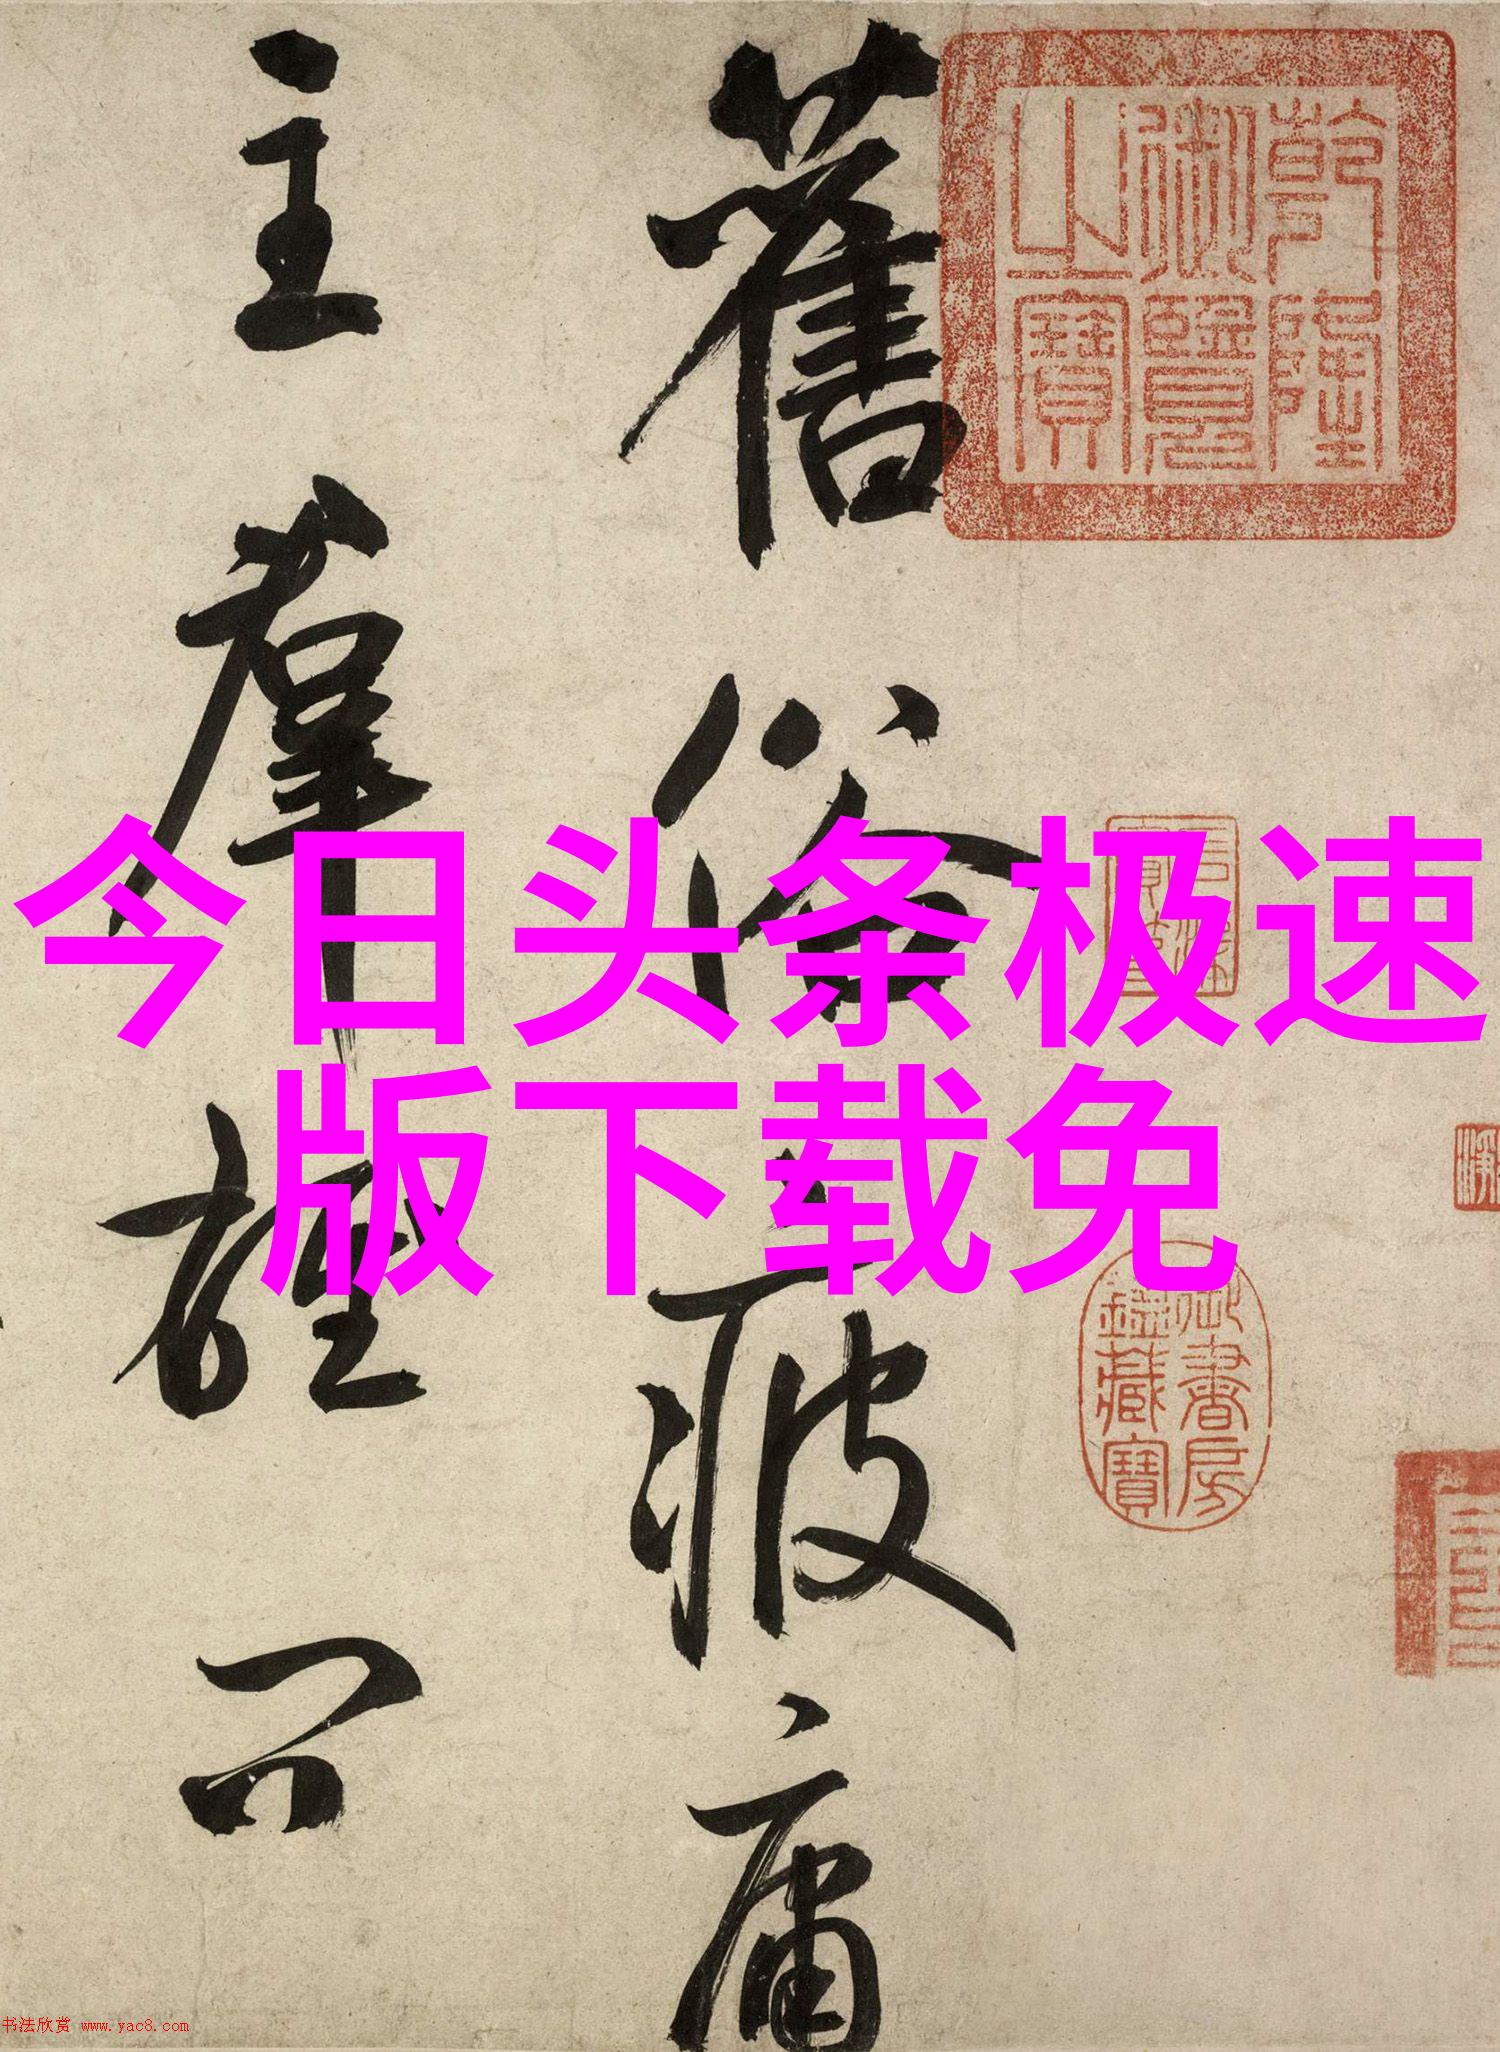 今日头条极速
版下载免
舊俗疲庸
主群雄只
乾隆
御覽
之寶
御書房
鑑藏寶
书法欣赏 www.yac8.com